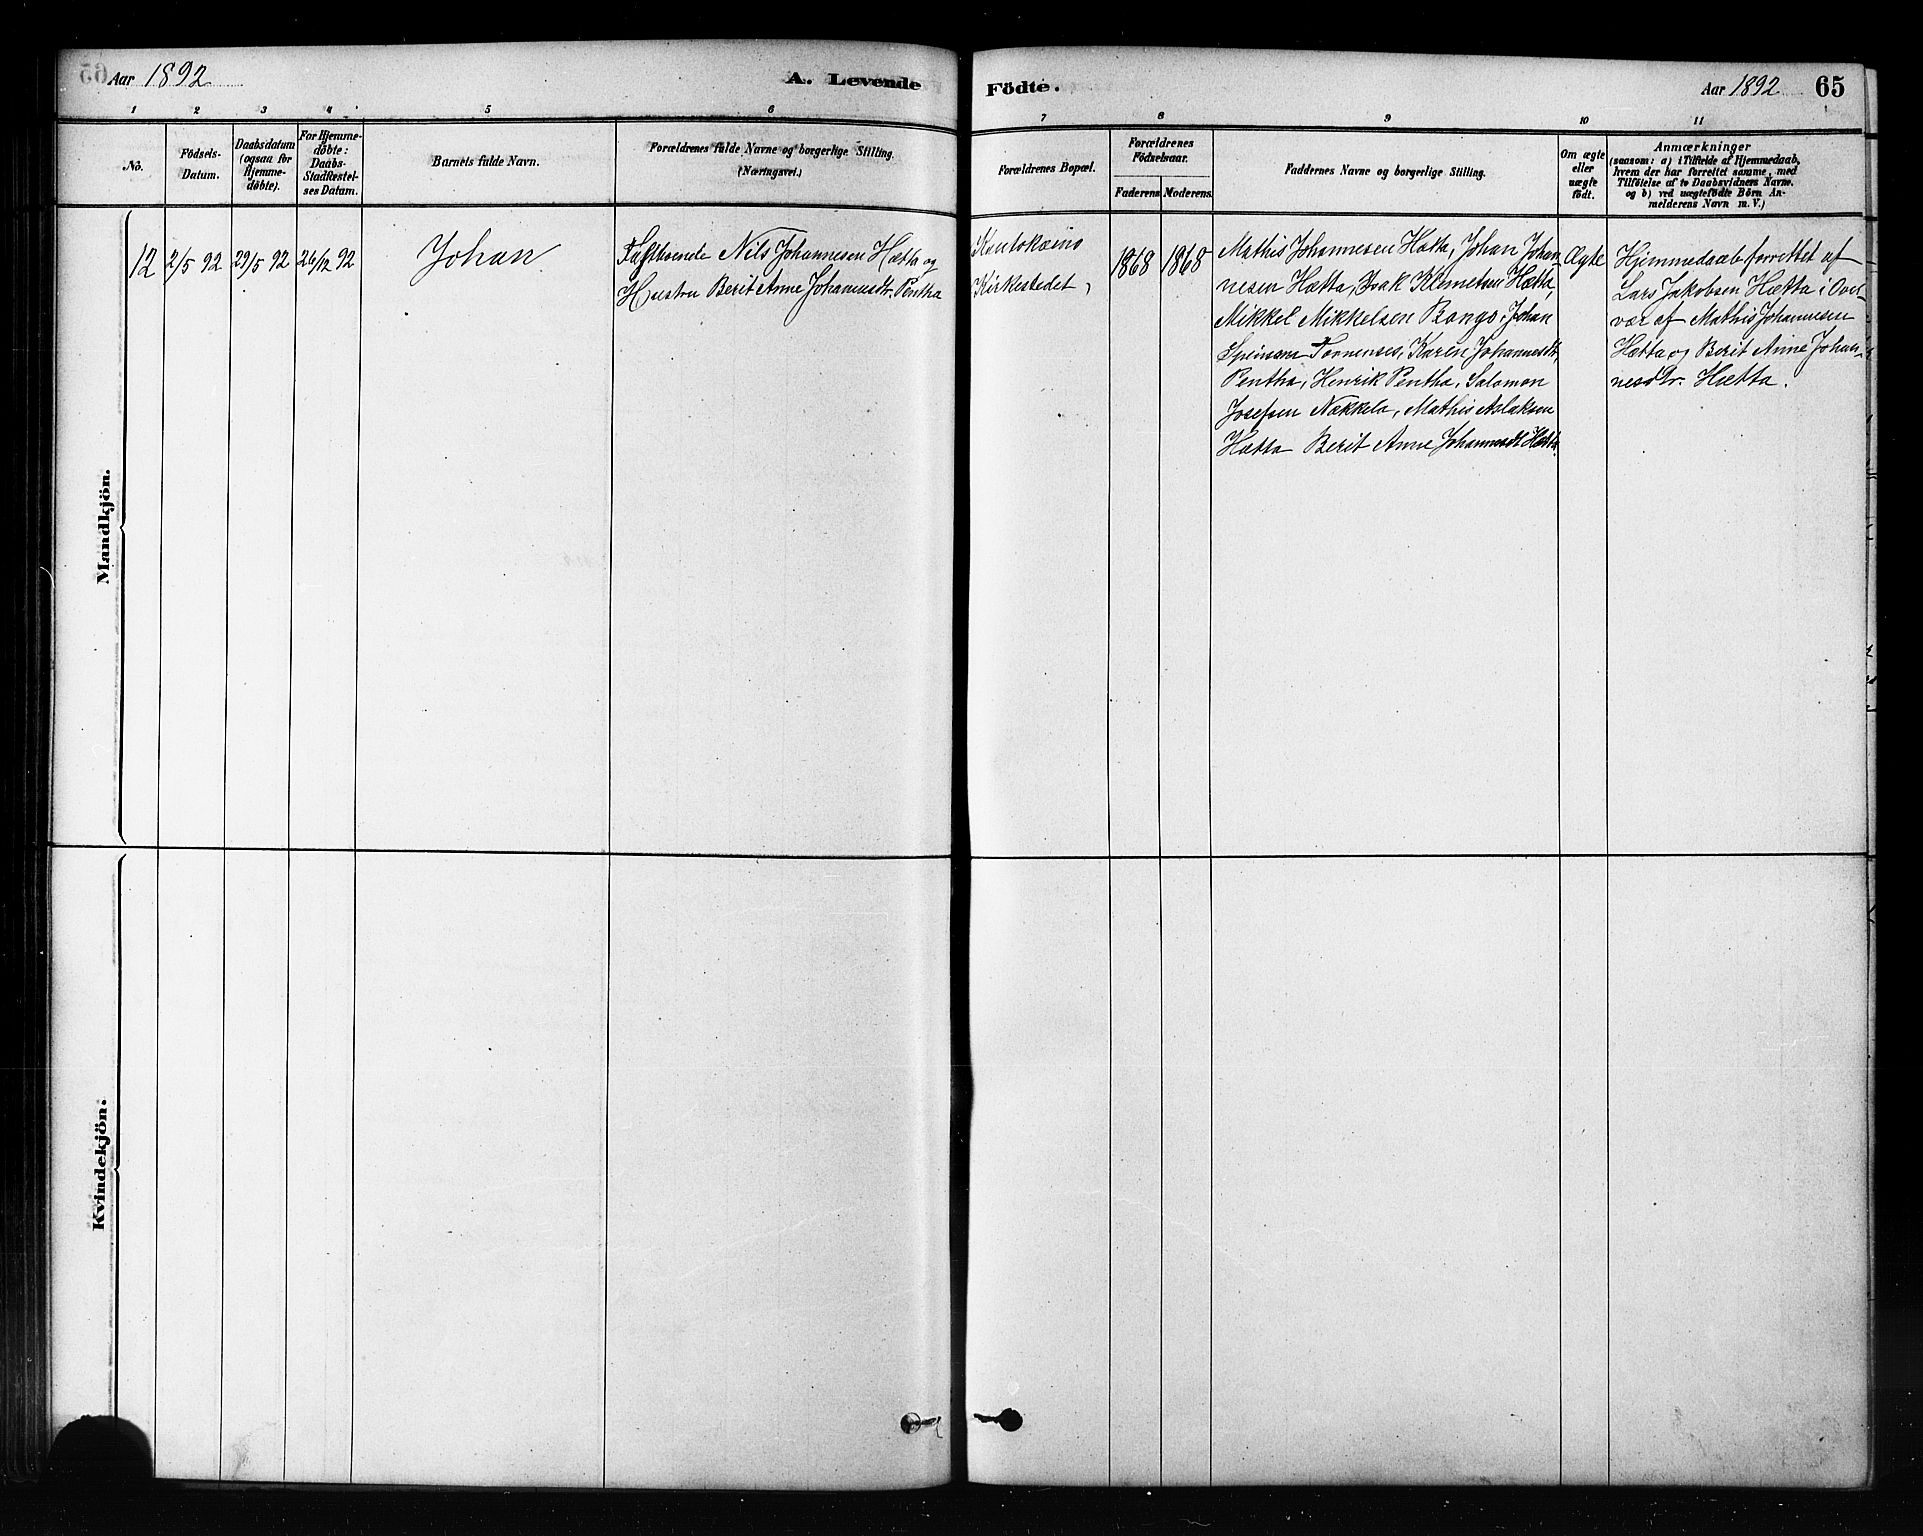 Aar 1892
A. Levende
Födte.
Aar 1892
65
1 2 3 4 5 6
7 8 9 10 11
No.
Födsels-
Datum.
Daabsdatum
(ogsaa for
Hjemme-
döbte).
For Hjemme-
döbte:
Daabs-
Stadfæstel-
ses Datum.
Barnets fulde Navn.
Forældrenes fulde Navne og borgerlige Stilling.
(Næringsvei.)
Forældrenes Bopæl.
Forældrenes
Födselsaar.
Faderens
Moderens.
Faddernes Navne og borgerlige Stilling.
Om ægte
eller
uægte
födt.
Anmærkninger
(saasom: a) i Tilfælde af Hjemmedaab,
hvem der har forrettet samme, med
Tilföielse af to Daabsvidners Navne.
og b) ved uægtefödte Börn An-
melderens Navn m. V.)
Mandkjön.
12
2/5 92
29/5 92
26/12 92
Johan
Fastboende Nils Johannesen Hætta og
Hustru Berit Anne Johannesdtr. Pentha
Kautokæino
Kirkestedet,
1868
1868
Mathis Johannesen Hætta, Johan Johan-
nesen Hætta, Isak Klemetsen Hætta,
Mikkel Mikkelsen Bongo, Johan
Tornenses, Karen Johannesdtr
Pentha, Henrik Pentha, Salomon
Josefsen Nækkela, Mathis Aslaksen
Hætta Berit Anne Johannesdt Hætta.
Ægte
Hjemmedaab forrettet af
Lars Jakobsen Hætta i Over-
vær af Mathis Johannesen
Hætta og Berit Anne Johan-
nesdtr. Hætta.
Kvindekjön.